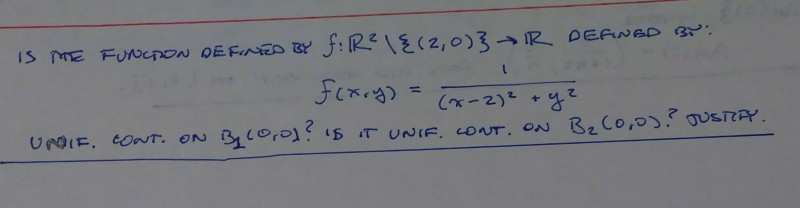 IS THE FUNCTION DEFINED BY f: ℝ² \ {(2,0)} → ℝ DEFINED BY:
f(x,y) = 1 / ((x-2)² + y²)
UNIF. CONT. ON B₁(0,0)? IS IT UNIF. CONT. ON B₂(0,0)? JUSTIFY.